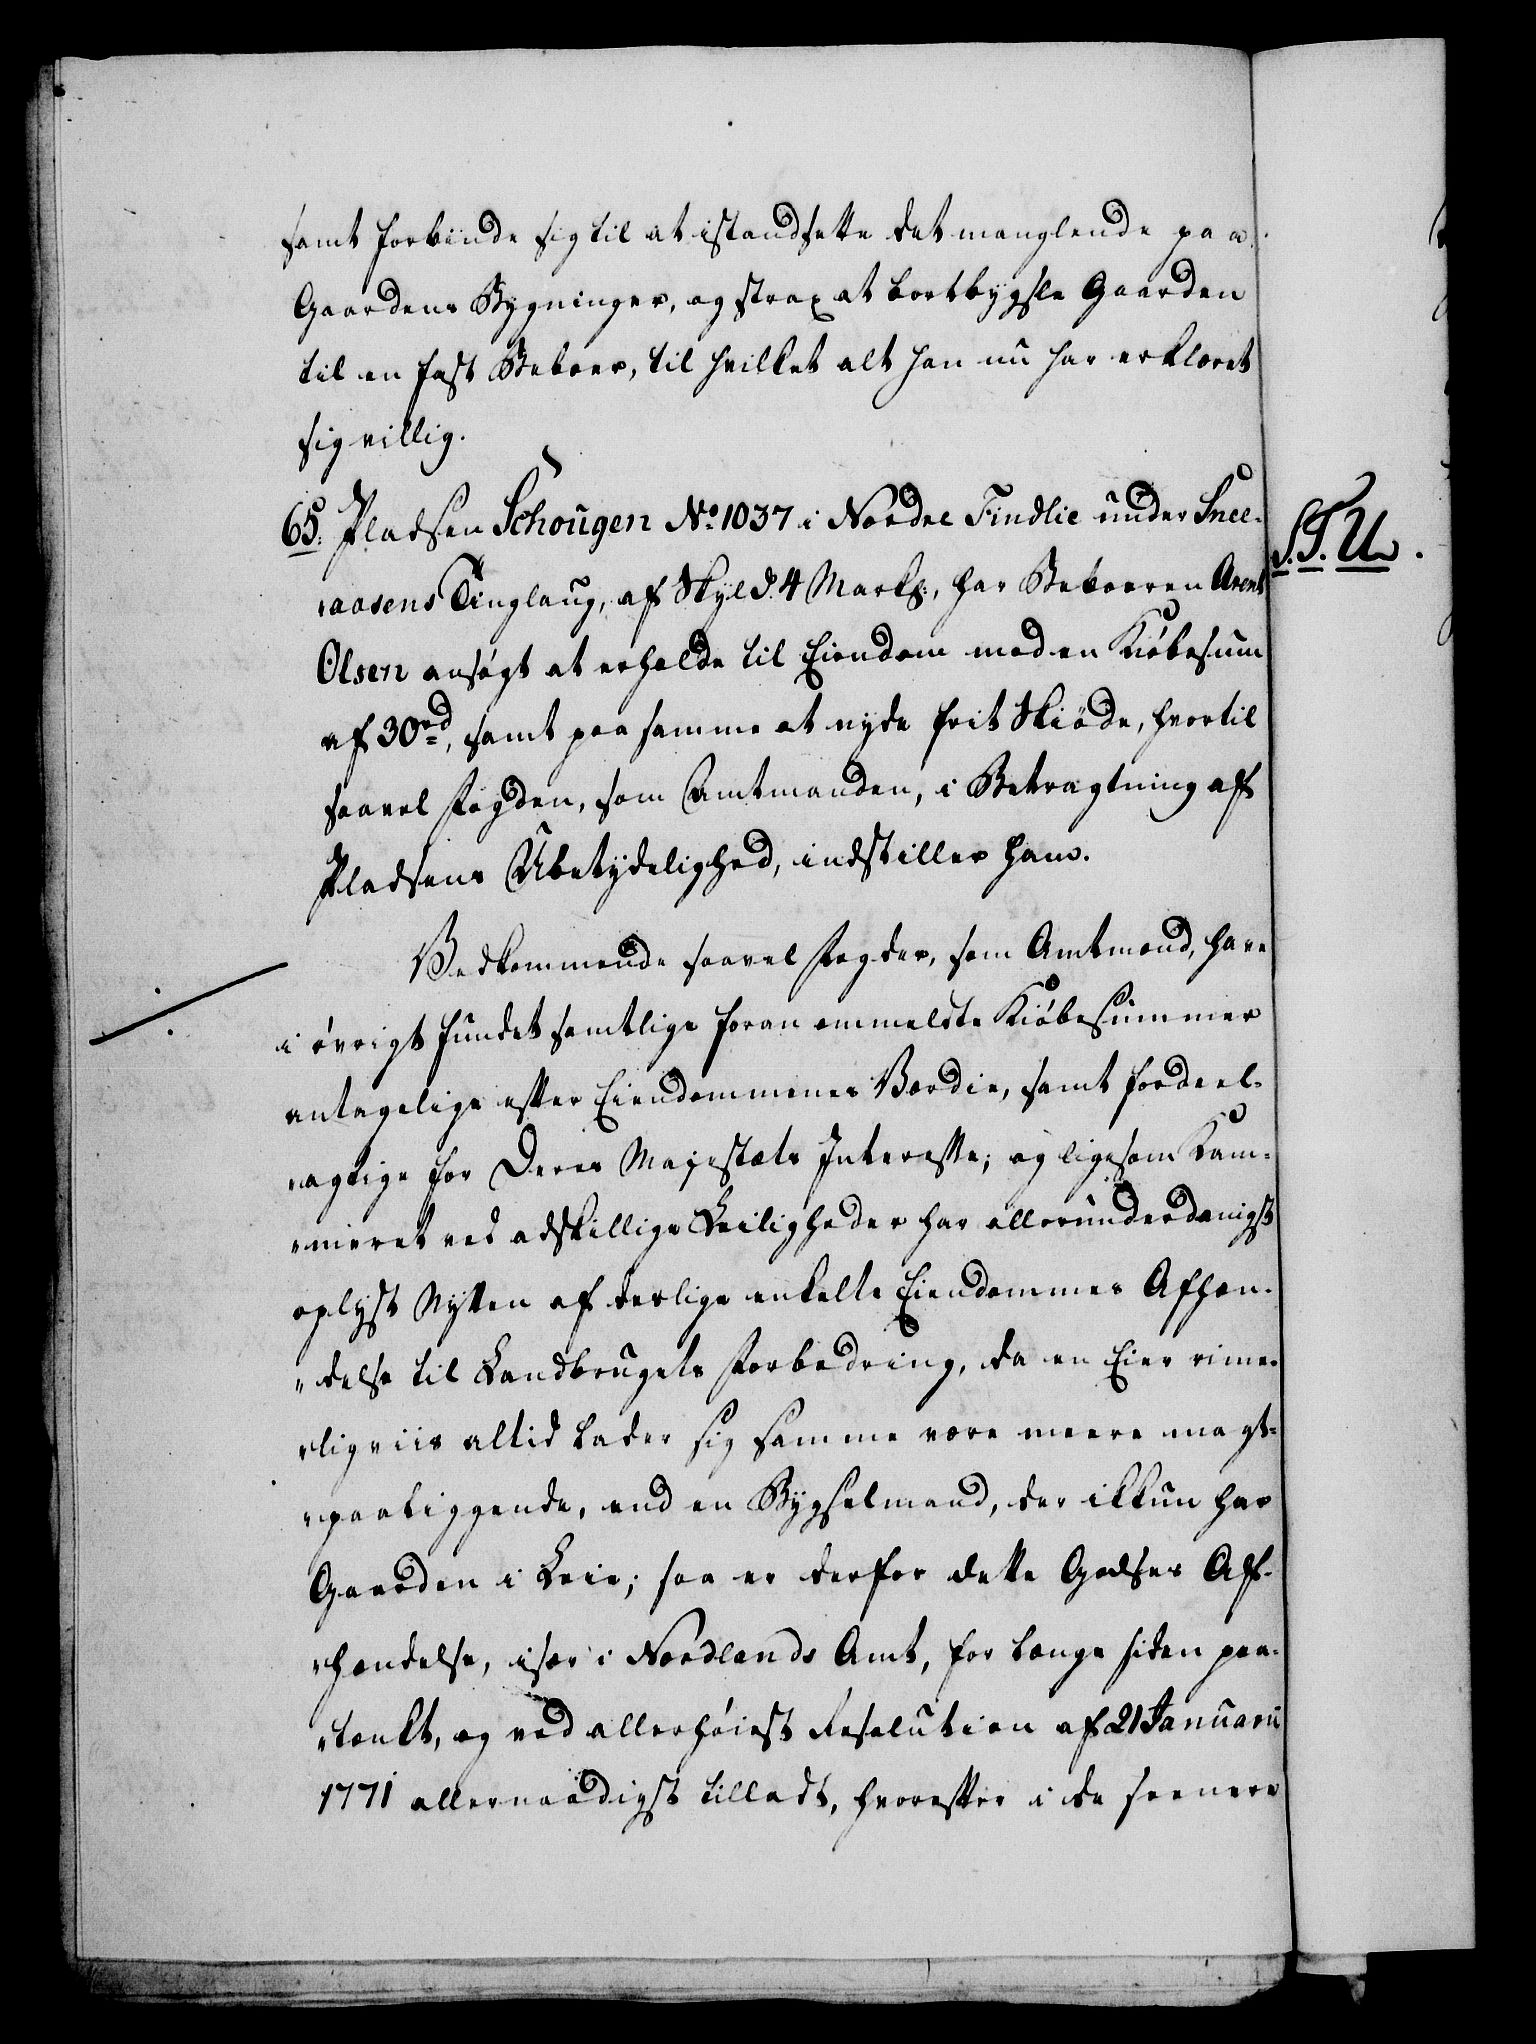 samt forbinde sig til at istandsette det manglende paa
Gaardens Bygninger, og strax at bortbygsle Gaarden
til en fast Beboer, til hvilket alt han nu har erklæret
sig villig.
65. Pladsen Schougen No. 1037 i Nordre Findlie under Snee-
aasens Tinglaug, af Skyld 4 Markl:, har Beboeren Arent
Olsen ansøgt at erholde til Eiendom mod en Kiøbesum
af 30rd, samt paa samme at nyde frit Skiøde, hvortil
saavel Fogden, som Amtmanden, i Betragtning af
Pladsens Ubetydelighed, indstiller ham.
Vedkommende saavel Fogder, som Amtmænd, have
i øvrigt fundet samtlige foran ommeldte Kiøbesummer
antagelige efter Eiendommenes Værdie, samt fordeel-
agtige for Deres Majestæts Interesse; og ligesom Kam-
meret ved adskillige Leiligheder har allerunderdanigst
oplyst Nytten af deslige enkelte Eiendommes Afhæn-
delse til Landbrugets Forbedring, da en Eier rime-
ligviis altid lader sig samme være meere magt-
paaliggende, end en Bygselmand, der ikkun har
Gaarden i Leie; saa er derfor dette Godses Af-
hændelse, især i Nordlands Amt, for længe siden paa-
tænkt, og ved allerhøiest Resolution af 21 Januarii
1771 allernaadigst tilladt, hvorefter i de seenere
S. T. U.